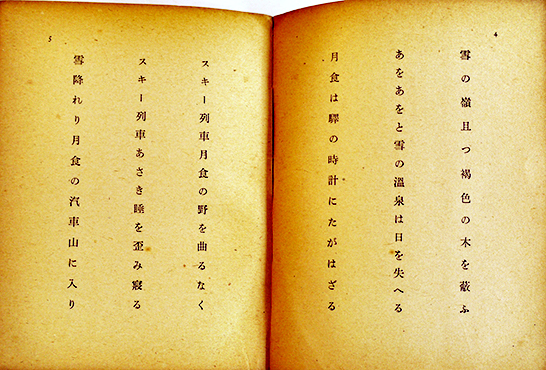 4
雪の嶺且つ褐色の木を蔽ふ
あをあをと雪の温泉は日を失へる
月食は驛の時計にたがはざる
5
スキー列車月食の野を曲るなく
スキー列車あさき睡を歪み寝る
雪降れり月食の汽車山に入り